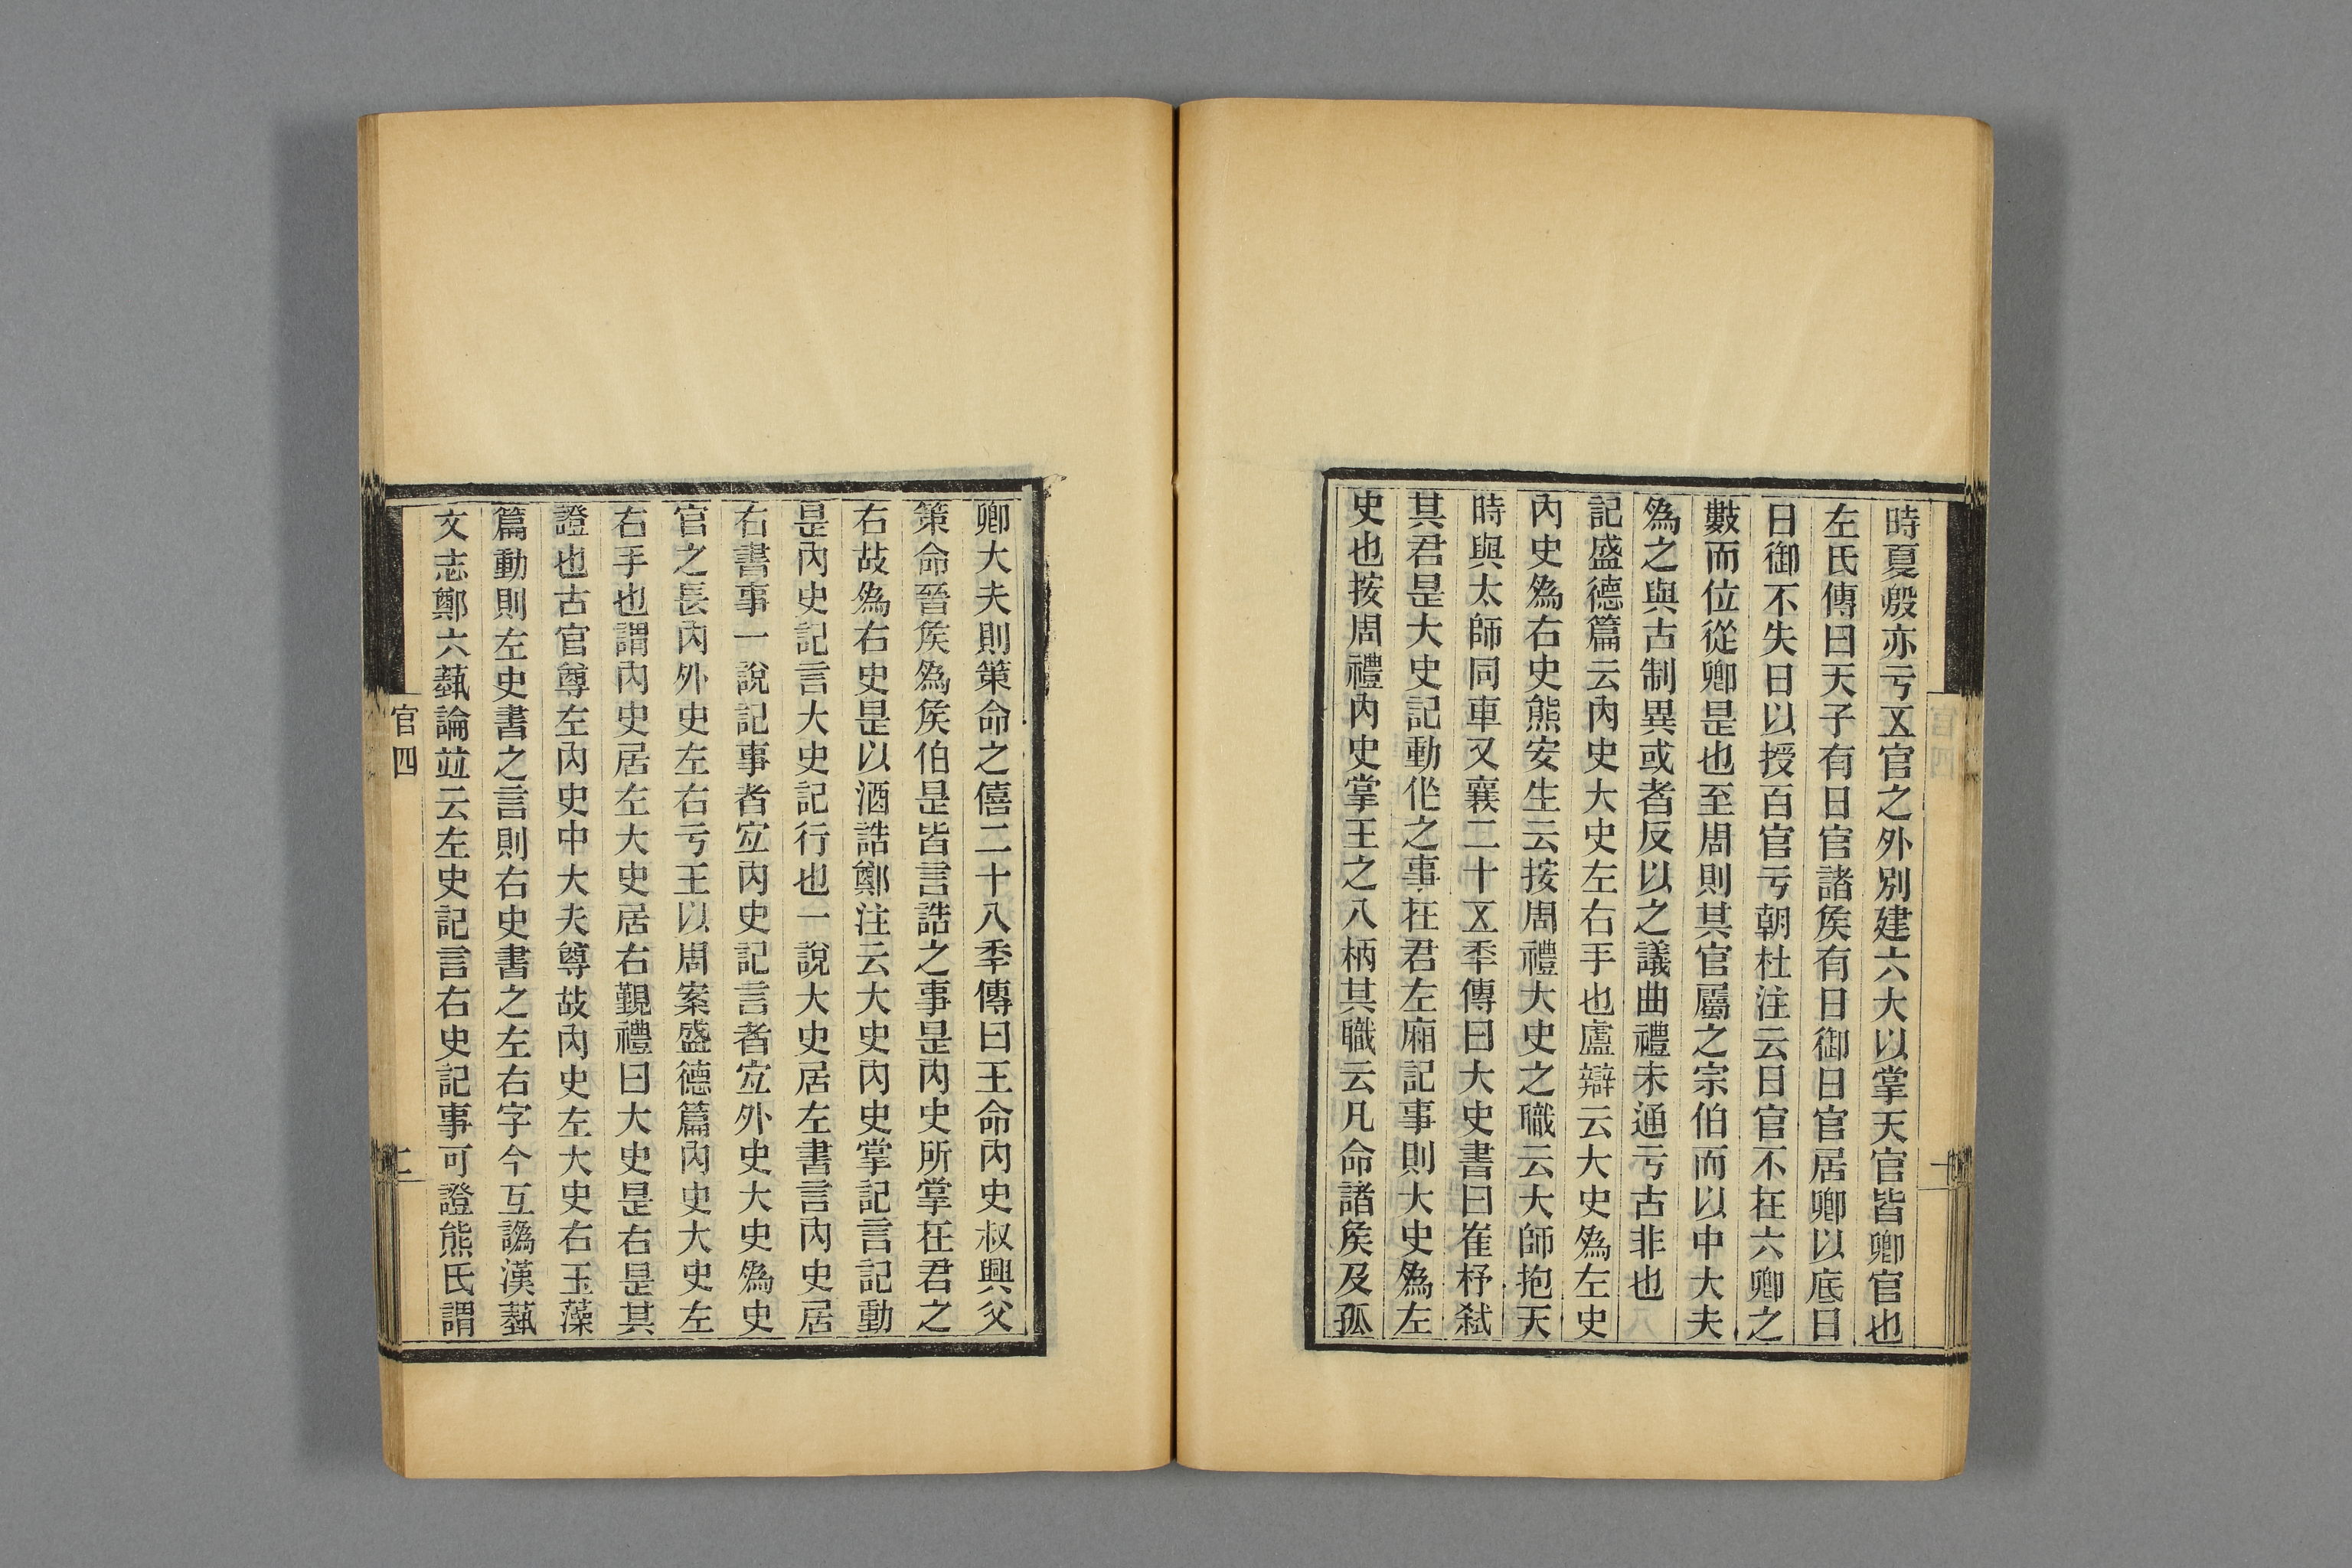 時夏殷亦亏𠄡官之外別建六大以掌天官皆卿官也
左氏傳曰天子有日官諸矦有日御日官居卿以底日
日御不失日以授百官亏朝杜注云日官不在六卿之
數而位從卿是也至周則其官屬之宗伯而以中大夫
爲之與古制異或者反以之議曲禮未通亏古非也
記盛德篇云內史大史左右手也盧辯云大史爲左史
內史爲右史熊安生云按周禮大史之職云大師抱天
時與太師同車又襄二十𠄡秊傳曰大史書曰崔杼弑
其君是大史記動作之事在君左廂記事則大史爲左
史也按周禮內史掌王之八柄其職云凡命諸矦及孤
卿大夫則策命之僖二十八秊傳曰王命內史叔興父
策命晉矦爲矦伯是皆言誥之事是內史所掌在君之
右故爲右史是以酒誥鄭注云大史內史掌記言記動
是內史記言大史記行也一說大史居左書言內史居
右書事一說記事者宐內史記言者宐外史大史爲史
官之長內外史左右亏王以周案盛德篇內史大史左
右手也謂內史居左大史居右覲禮曰大史是右是其
證也古官尊左內史中大夫尊故內史左大史右玉藻
篇動則左史書之言則右史書之左右字今互譌漢蓺
文志鄭六蓺論竝云左史記言右史記事可證熊氏謂
官四
二